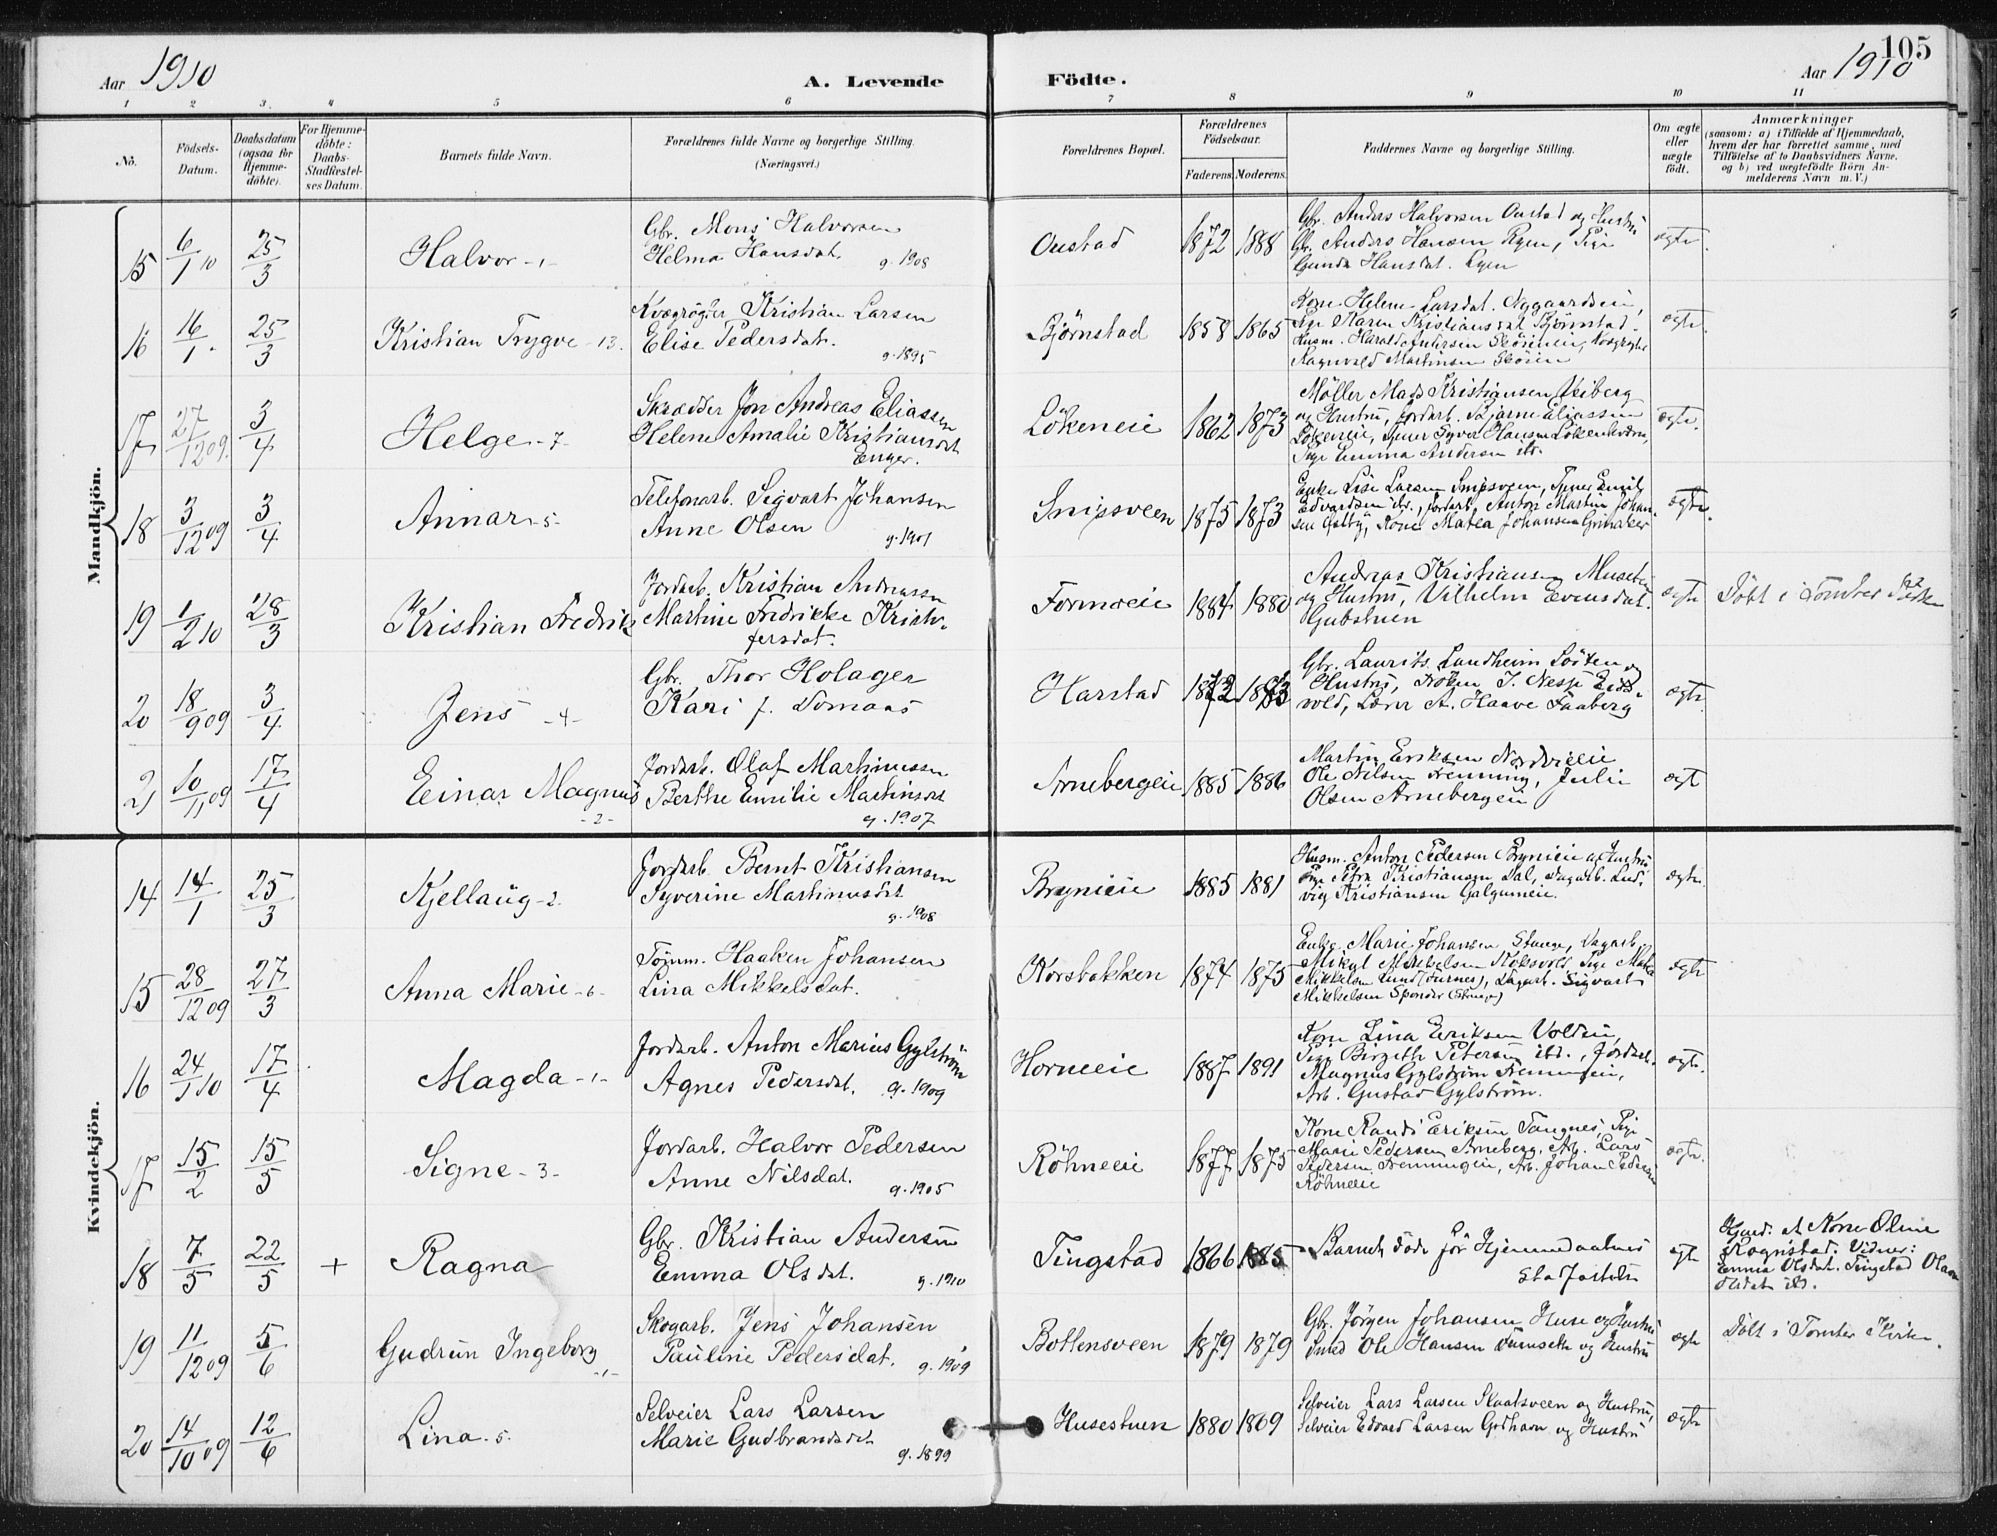 Aar 1910
A. Levende Födte.
Aar 1910
105
1 2 3. 4 5 6 7 8 9 10 11
No.
Födsels-Datum.
Daabsdatum (ogsaa for Hjemme-döbte).
For Hjemme-döbte: Daabs-Stadfæstel-ses Datum.
Barnets fulde Navn.
Forældrenes fulde Navne og borgerlige Stilling. (Næringsvei.)
Forældrenes Bopæl.
Forældrenes Födselsaar.
Faderens. Moderens.
Faddernes Navne og borgerlige Stilling.
Om ægte eller uægte födt.
Anmærkninger
(saasom: a) i Tilfælde af Hjemmedaab,
hvem der har forrettet samme, med
Tilföielse af to Daabsvidners Navne,
og b) ved uægtefödte Börn An-
melderens Navn m. V.)
Mandkjön.
15 6/1 10 25/3 Halvor -1-
Gbr. Mons Halvorsen
Helma Hansdat. g. 1908
Oustad 1872 1888
Gbr. Anders Halvorsen Oustad og Hustru
Gbr. Anders Hansen Ryen, Pige
Gunda Hansdat. Ryen
ægte.
16 16/1. 25/3 Kristian Trygve -13.
Kvægrøgter Kristian Larsen
Elise Pedersdat. g. 1895
Bjørnstad 1858 1865
Kone Helene Larsdat. Nygaardseie,
Pige Karen Kristiansdat Bjørnstad.
Husm. Harald Andersen Skøieneie,
Ragnvald Martinsen Skøien
ægte.
17 27/12 09. 3/4 Helge -7-
Skrædder Jon Andreas Eliassen
Helene Amalie Kristiansdt
Enger.
Lökeneie 1862 1873
Möller Mads Kristiansen Viiberg
og Hustru, Jordarb. Bjarne Eliassen
Lökeneie, Tjener Syver Hansen Lökenkværn,
Pige Emma Andersen ibd.
ægte.
18 3/12 09 3/4 Annar -5-
Telefonarb. Sigvart Johansen
Anne Olsen g. 1901
Snipsveen 1875 1873
Enke Lise Larsen Snipsveen, Tjener Emil
Edvardsen ibd., Jordarb. Anton Martin Johan-
sen Galby, Kone Matea Johansen Grinaker
ægte.
19 1/2 10 28/3 Kristian Fredrik
Jordarb. Kristian Andreassen
Martine Fredrikke Kristo-
fersdat.
Formoeie 1884 1880
Andreas Kristiansen Museber
og Hustru, Vilhelm Evensdat.
Gubstuen
ægte Döbt i Tomter Kirke
20 18/9 09 3/4 Jens -4-
Gbr. Thor Holager
Kari f. Domaas
Harstad 1872 1873
Gbr. Laurits Sundheim Löiten og
Hustru, Frøken J. Nesse Eids-
vold, Lærer A. Haave Faaberg
ægte.
21 10/11 09 17/4 Einar Magnus -2-
Jordarb. Olaf Martinussen
Berthe Emilie Martinsdt g. 1907
Arnebergeie 1885 1886
Martin Eriksen Nordvieie
Ole Nilsen Frenning, Julie
Olsen Arnebergeie
ægt
Kvindekjön.
14 14/1 25/3 Kjellaug -2.
Jordarb. Bernt Kristiansen
Syverine Martinusdt g. 1908
Brynieie 1885 1881
Husm. Anton Pedersen Brynieie og Hustru
Pige Petra Kristiansen Dal, Dagarb. Lud-
vig Kristiansen Galgumeie.
ægte.
15 28/12 09 27/3 Anna Marie -6-
Tömm. Haaken Johansen
Lina Mikkelsdat.
Korsbakken 1874 1875
Enke Marie Johansen, Stange, Dagarb.
Mikal Mikkelsen Koksvold, Pige Marka
Mikkelsen Lund (Furnes), Dagarb. Sigvart
Mikkelsen Sponder (Stange)
ægte
16 24/1 10 17/4 Magda -1-
Jordarb. Anton Marius Gylström
Agnes Pedersdat. g. 1909
Horneeie 1887 1891
Kone Lina Eriksen Voldeie,
Pige Birgith Petersen ibd., Jordarb.
Magnus Gylström Frenningeie,
Arb. Gustad Gylström.
ægte.
17 15/2 15/5 Signe -3-
Jordarb. Halvor Pedersen
Anne Nilsdat. g. 1905
Röhneeie 1877 1875
Kone Randi Eriksen Tangnes, Pige
Marie Pedersen Arneberg, Arb. Lars
Pedersen Frenningeie, Arb. Johan Pedersen
Röhneeie
ægte.
18 7/5 22/5 + Ragna
Gbr. Kristian Andersen
Emma Olsdat. g. 1910
Tingstad 1866 1885
Barnet døde før Hjemmedaabens
Stadfæstelse
ægt
Hjmd. af Kone Oline
Rognstad. Vidner:
Emma Olsdat. Tingstad Olava
Olsdat ibd.
19 11/12 09 5/6 Gudrun Ingeborg -1-
Skogarb. Jens Johansen
Pauline Pedersdat. g. 1909
Bottensveen 1879 1879
Gbr. Jörgen Johansen Huse og Hustru
Smed Ole Hansen Furuseth og Hustru
ægte Döbt i Tomter Kirke.
20 14/10 09 12/6 Lina -5.
Selveier Lars Larsen
Marie Gudbrandsdt g. 1899
Husestuen 1880 1869
Selveier Lars Larsen Slaatsveen og Hustru,
Selveier Edvard Larsen Godhavn og Hustru
ægte